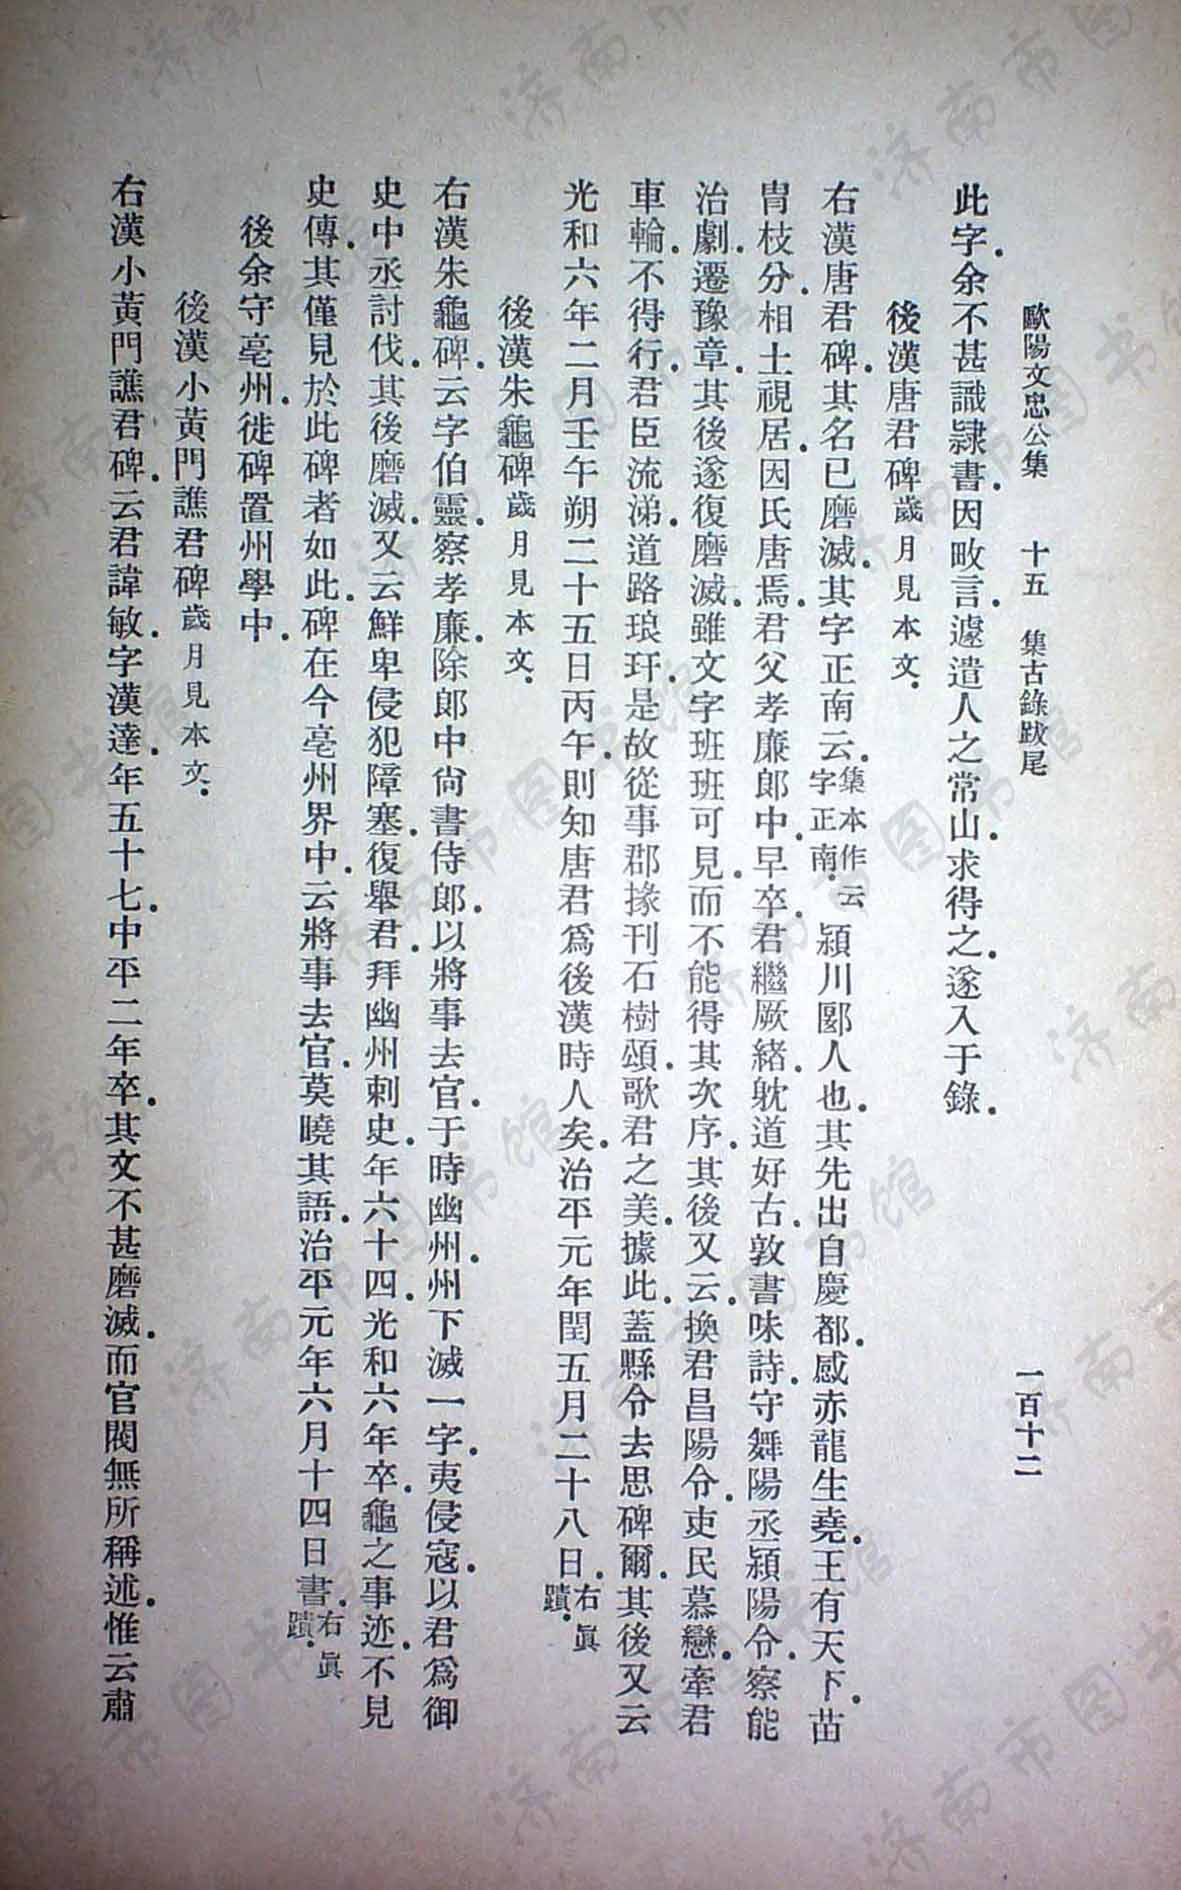 歐陽文忠公集　十五　集古錄跋尾　一百十二
此字余不甚識隸書因畋言遽遣人之常山求得之遂入于錄
後漢唐君碑歲月見本文
右漢唐君碑其名已磨滅其字正南云集本作云字正南潁川郾人也其先出自慶都感赤龍生堯王有天下苗
胄枝分相土視居因氏唐焉君父孝廉郎中早卒君繼厥緒躭道好古敦書味詩守舞陽丞潁陽令察能
治劇遷豫章其後遂復磨滅雖文字班班可見而不能得其次序其後又云換君昌陽令吏民慕戀牽君
車輪不得行君臣流涕道路琅玕是故從事郡掾刊石樹頌歌君之美據此蓋縣令去思碑爾其後又云
光和六年二月壬午朔二十五日丙午則知唐君爲後漢時人矣治平元年閏五月二十八日右眞蹟
後漢朱龜碑歲月見本文
右漢朱龜碑云字伯靈察孝廉除郎中尚書侍郎以將事去官于時幽州州下滅一字夷侵寇以君爲御
史中丞討伐其後磨滅又云鮮卑侵犯障塞復舉君拜幽州刺史年六十四光和六年卒龜之事迹不見
史傳其僅見於此碑者如此碑在今亳州界中云將事去官莫曉其語治平元年六月十四日書右眞蹟
後余守亳州徙碑置州學中
後漢小黃門譙君碑歲月見本文
右漢小黃門譙君碑云君諱敏字漢達年五十七中平二年卒其文不甚磨滅而官閥無所稱述惟云肅
济南市图书馆